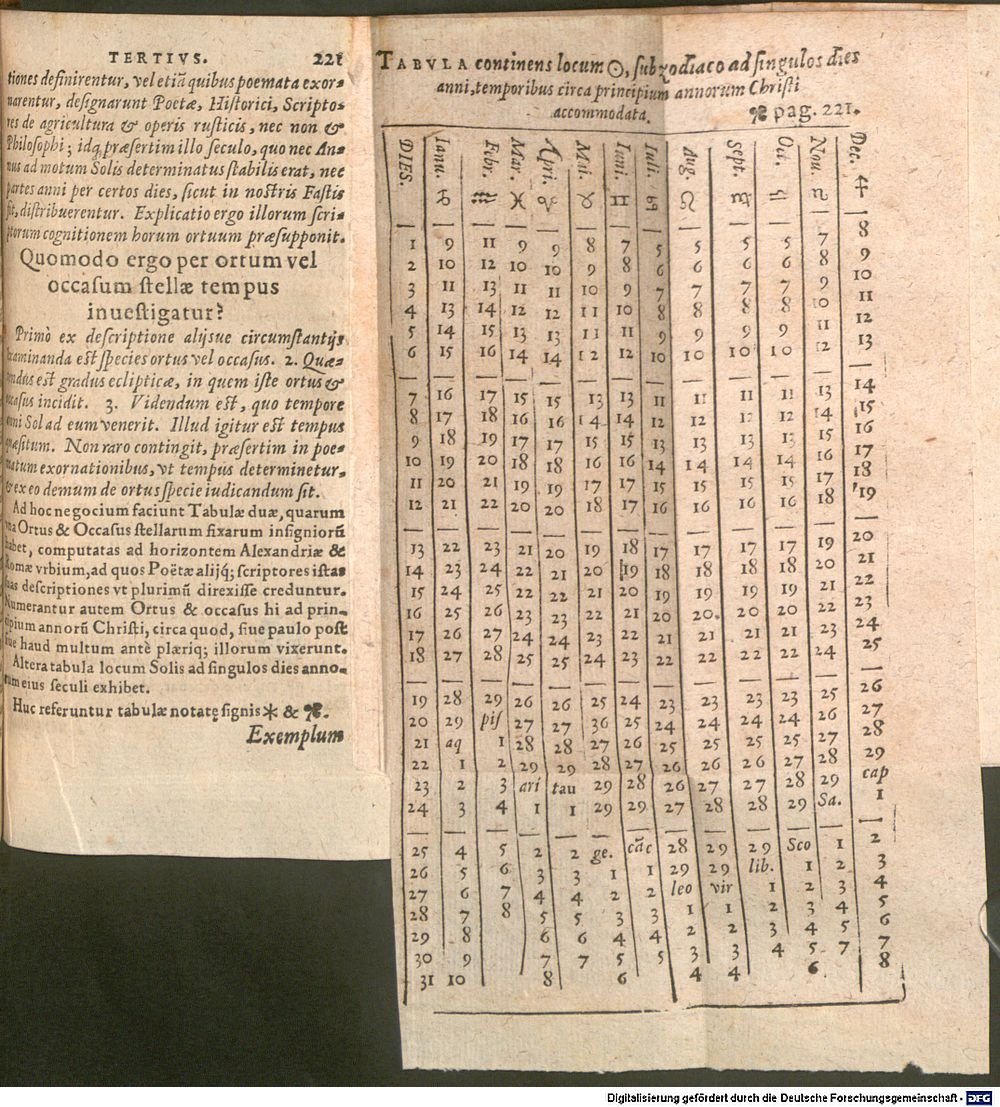 TERTIVS. 221
tiones definirentur, vel etiã quibus poemata exor-
narentur, designarunt Poetæ, Historici, Scripto-
res de agricultura & operis rusticis, nec non &
Philosophi; idq́; præsertim illo seculo, quo nec An-
nus ad motum Solis determinatus stabilis erat, nec
partes anni per certos dies, sicut in nostris Fastis
fit, distribuerentur. Explicatio ergo illorum scri-
ptorum cognitionem horum ortuum præsupponit.
Quomodo ergo per ortum vel
occasum stellæ tempus
inuestigatur?
Primò ex descriptione alijsue circumstantijs
examinanda est species ortus vel occasus. 2. Quæ-
rendus est gradus eclipticæ, in quem iste ortus &
occasus incidit. 3. Videndum est, quo tempore
anni Sol ad eum venerit. Illud igitur est tempus
quæsitum. Non raro contingit, præsertim in poe-
matum exornationibus, vt tempus determinetur,
& ex eo demum de ortus specie iudicandum sit.
Ad hoc negocium faciunt Tabulæ duæ, quarum
vna Ortus & Occasus stellarum fixarum insigniorũ
habet, computatas ad horizontem Alexandriæ &
Romæ vrbium, ad quos Poëtæ alijq́; scriptores istas
has descriptiones vt plurimũ direxisse creduntur.
Numerantur autem Ortus & occasus hi ad prin-
cipium annorũ Christi, circa quod, siue paulo post
siue haud multum antè plæriq; illorum vixerunt.
Altera tabula locum Solis ad singulos dies anno-
rum eius seculi exhibet.
Huc referuntur tabulæ notatę signis * & ✤.
Exemplum
TABVLA continens locum ☉, sub zodiaco ad singulos dies
anni, temporibus circa principium annorum Christi
accommodata. ✤ pag. 221.
DIES. Ianu. Febr. Mar. Apri. Mai. Iuni. Iuli. Aug. Sept. Oct. Nou. Dec.
♑ ♒ ♓ ♈ ♉ ♊ ♋ ♌ ♍ ♎ ♏ ♐
1 9 11 9 9 8 7 5 5 5 5 7 8
2 10 12 10 10 9 8 6 6 6 6 8 9
3 11 13 11 11 10 9 7 7 7 7 9 10
4 13 14 12 12 11 10 8 8 8 8 10 11
5 14 15 13 13 11 11 9 9 9 9 11 12
6 15 16 14 14 12 12 10 10 10 10 12 13
7 16 17 15 15 13 13 11 11 11 11 13 14
8 17 18 16 16 14 14 12 12 12 12 14 15
9 18 19 17 17 15 15 13 13 13 13 15 16
10 19 20 18 18 16 16 14 14 14 14 16 17
11 20 21 19 19 17 17 15 15 15 15 17 18
12 21 22 20 20 18 17 16 16 16 16 18 19
13 22 23 21 20 19 18 17 17 17 17 19 20
14 23 24 22 21 20 19 18 18 18 18 20 21
15 24 25 22 22 21 20 19 19 19 19 21 22
16 25 26 23 23 22 21 20 20. 20 20 22 23
17 26 27 24 24 23 22 21 21 21 21 23 24
18 27 28 25 25 24 23 22 22 22 22 24 25
19 28 29 26 26 25 24 23 23 23 23 25 26
20 29 pis 27 27 36 25 24 24 24 24 26 27
21 aq 1 28 28 27 26 25 25 25 25 27 28
22 1 2 29 29 28 27 26 26 26 27 28 29
23 2 3 ari tau 29 28 26 27 27 28 29 cap
24 3 4 1 1 29 29 27 28 28 29 Sa. 1
25 4 5 2 2 ge. cãc 28 29 29 Sco 1 2
26 5 6 3 3 1 1 29 29 lib. 1 2 3
27 6 7 4 4 2 2 leo vir 1 2 3 4
28 7 8 5 5 3 3 1 1 2 3 4 5
29 8 6 6 4 4 2 2 3 4 5 6
30 9 7 7 5 5 3 3 4 5 7 7
31 10 8 6 4 4 6 8
Digitalisierung gefördert durch die Deutsche Forschungsgemeinschaft - DFG